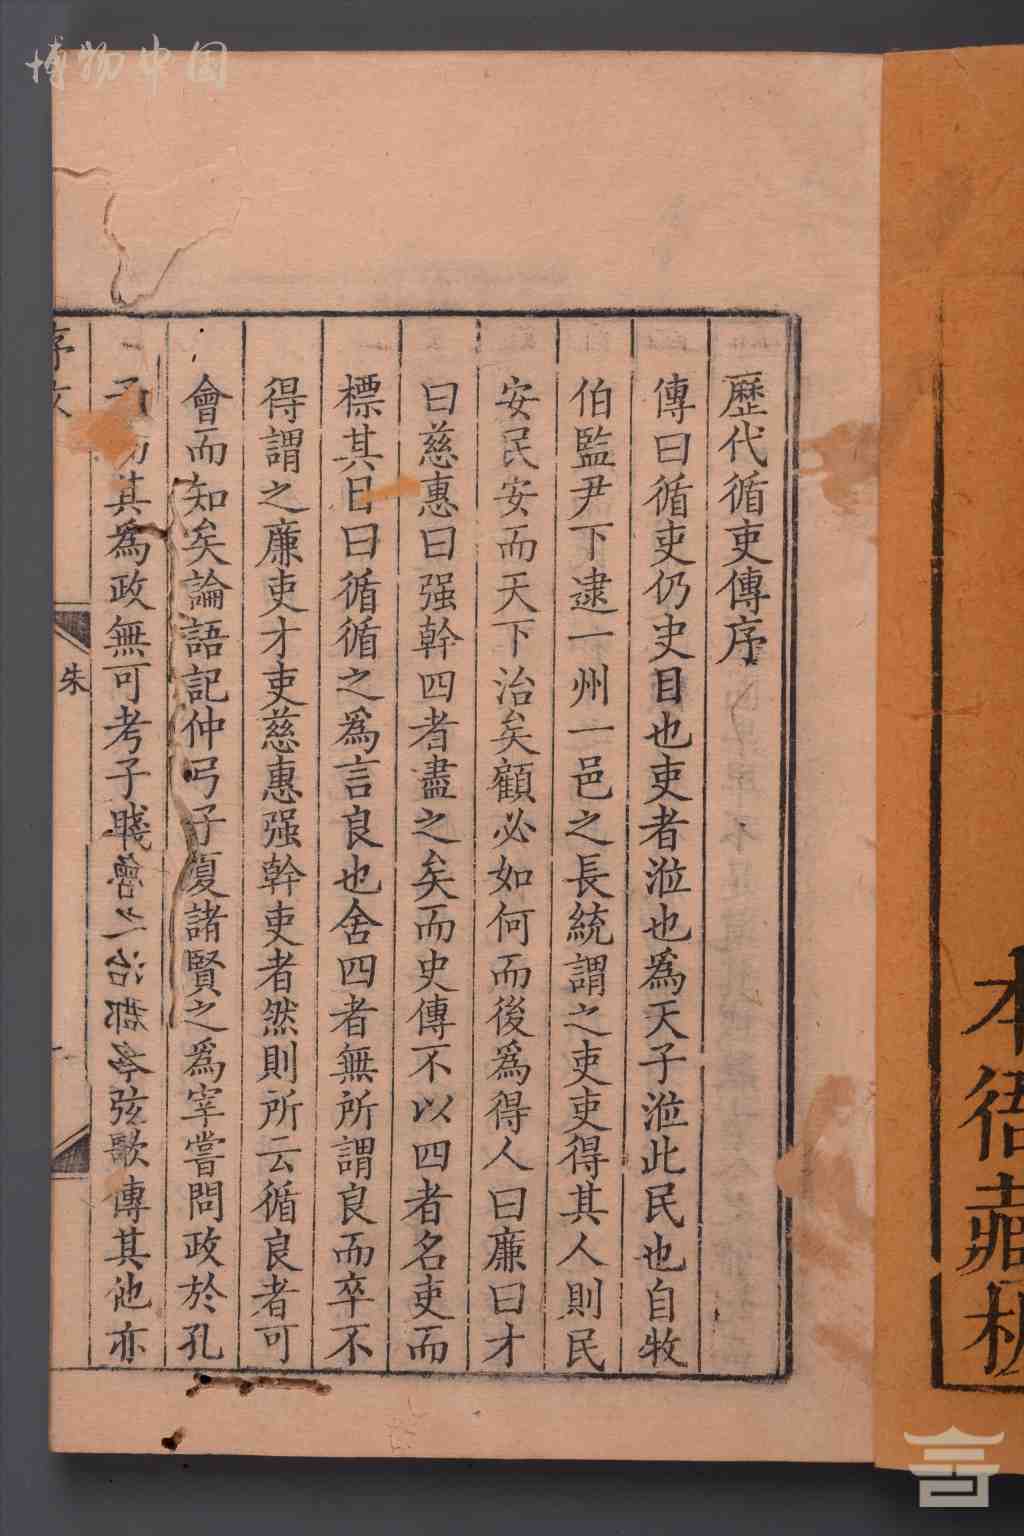 博物中国
本衙藏板
歷代循吏傳序
傳曰循吏仍史目也吏者涖也爲天子涖此民也自牧
伯監尹下逮一州一邑之長統謂之吏吏得其人則民
安民安而天下治矣顧必如何而後爲得人曰廉曰才
曰慈惠曰强幹四者盡之矣而史傳不以四者名吏而
標其目曰循循之爲言良也舍四者無所謂良而卒不
得謂之廉吏才吏慈惠强幹吏者然則所云循良者可
會而知矣論語記仲弓子夏諸賢之爲宰嘗問政於孔
子其爲政無可考子賤弦歌傳其他亦
序
朱